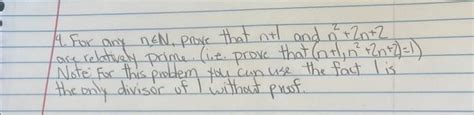 4. For any n∈N, prove that n+1 and n²+2n+2
are relatively prime. (i.e. prove that (n+1, n²+2n+2)=1)
Note: For this problem you can use the fact 1 is
the only divisor of 1 without proof.